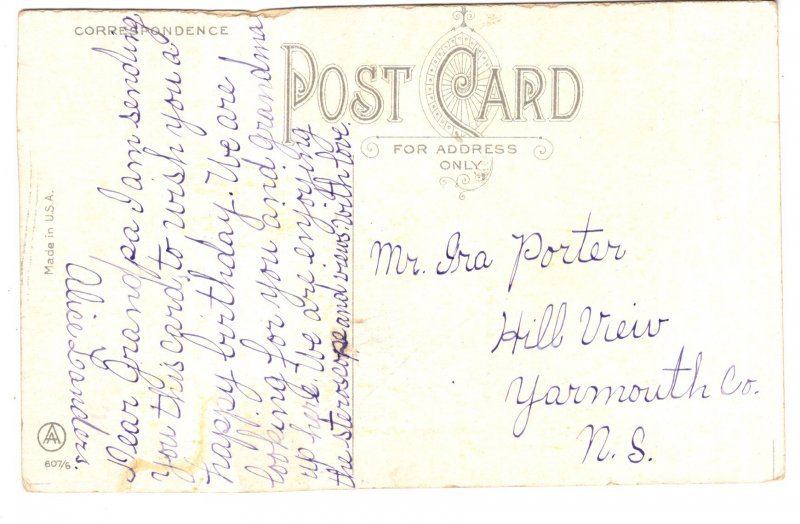 CORRESPONDENCE
POST CARD
FOR ADDRESS
ONLY.
Dear Grandpa I am sending
you this card to wish you a
happy birthday. We are all
looking for you and grandma
up here. We are enjoying
the steroscope and views. with love.
Alice Landers.
Mr. Ira Porter
Hill View
Yarmouth Co.
N.S.
Made in U.S.A.
AA
607/6